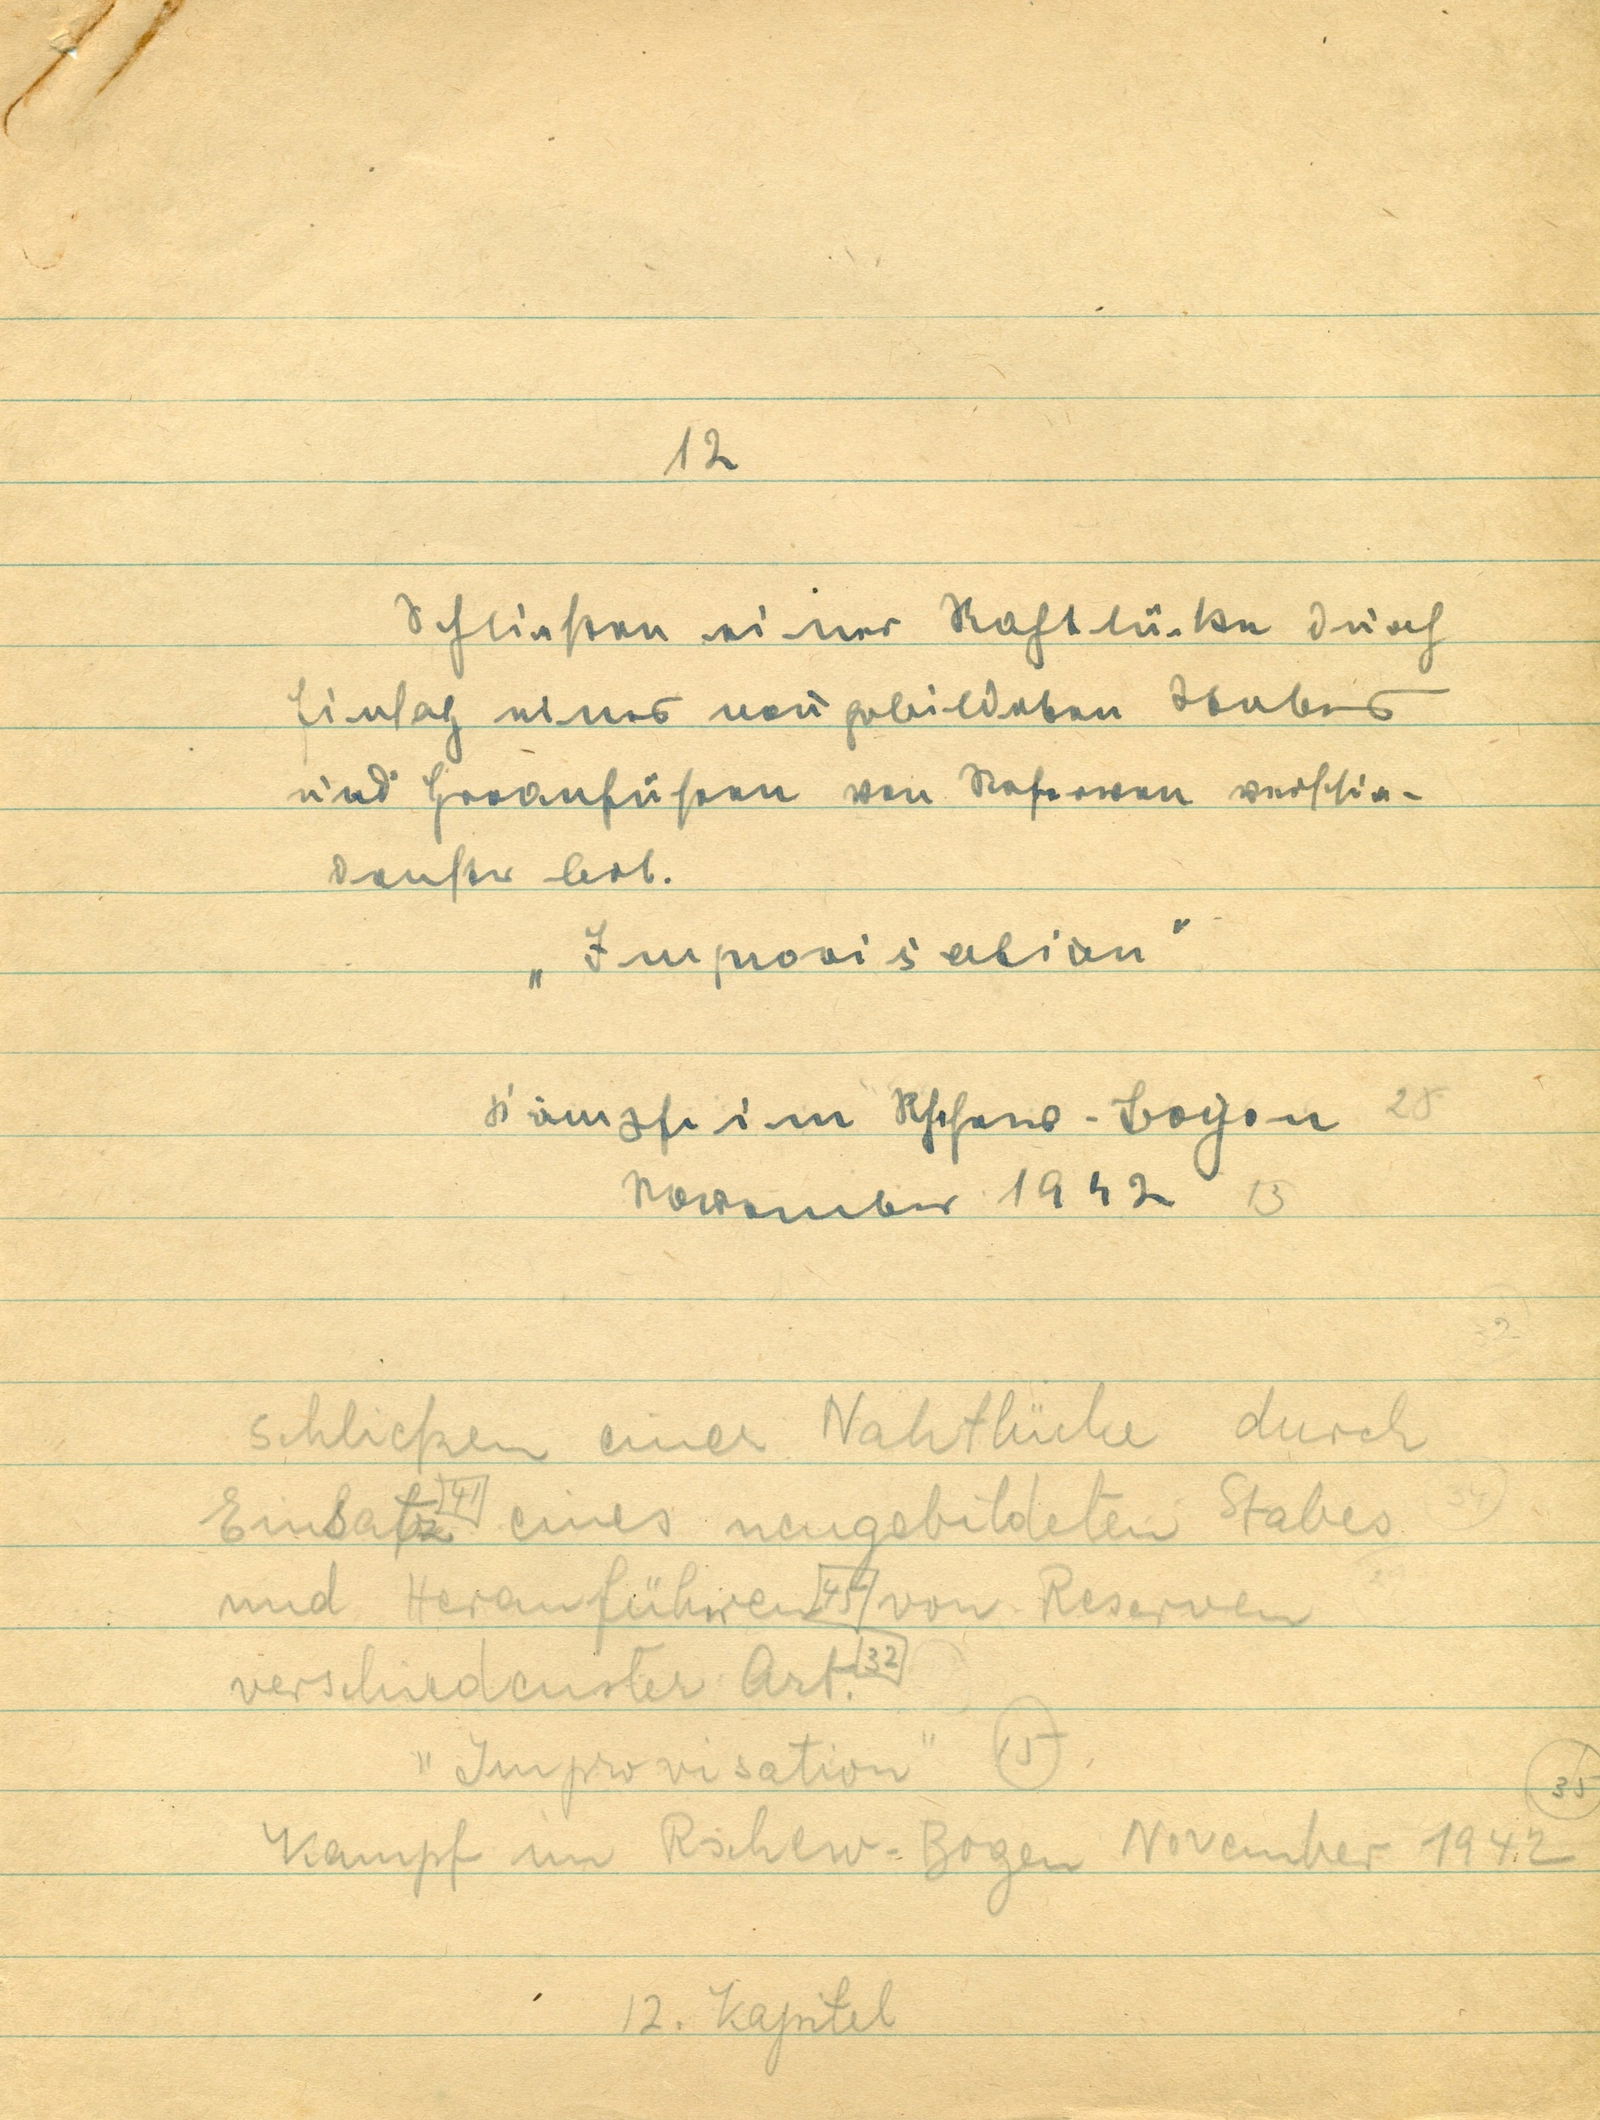 12
Schließen einer Nahtlücke durch
Einsatz eines neugebildeten Stabes
und Heranführen von Reserven verschie-
denster Art.
„Improvisation"
Kämpfe im Rschew-Bogen 28
November 1942 15
32
Schließen einer Nahtlücke durch
Einsatz 41 eines neugebildeten Stabes 34
und Heranführen 45 von Reserven
verschiedenster Art. 32
"Improvisation" 15
35
Kampf im Rschew-Bogen November 1942
12. Kapitel